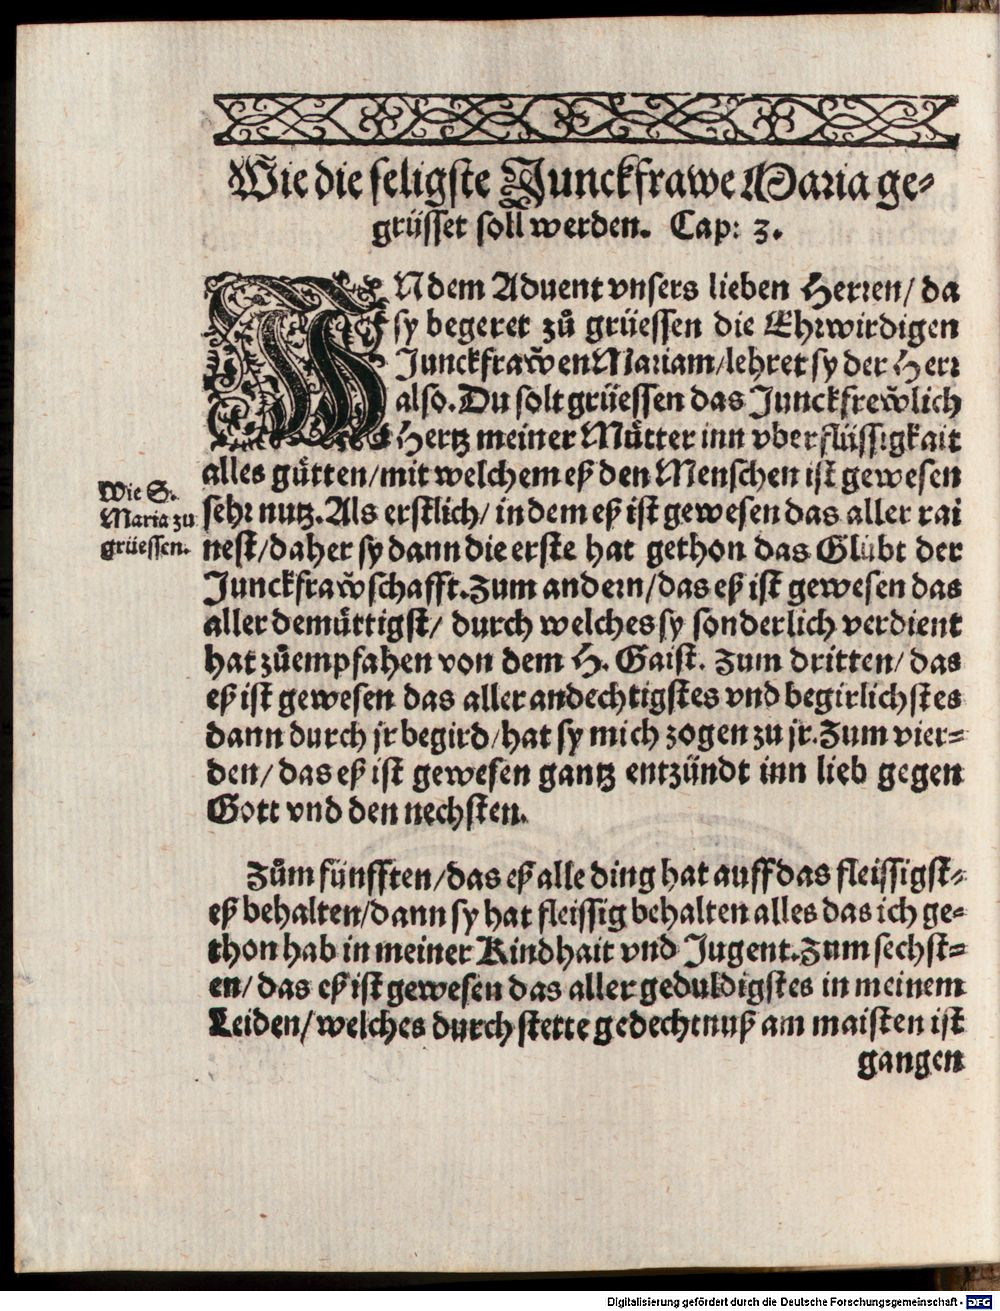 Wie die seligste Junckfrawe Maria ge-
grüsset soll werden. Cap: 3.
INdem Aduent vnsers lieben Herren/ da
sy begeret zů grüessen die Ehrwirdigen
Junckfraw̃en Mariam/lehret sy der Herr
also. Du solt grüessen das Junckfrew̃lich
Hertz meiner Můtter inn vberflüssigkait
alles gůtten/mit welchem eß den Menschen ist gewesen
sehr nutz. Als erstlich/ in dem eß ist gewesen das aller rai
nest/daher sy dann die erste hat gethon das Glübt der
Junckfraw̃schafft. Zum andern/das eß ist gewesen das
aller demüttigst/ durch welches sy sonderlich verdient
hat zůempfahen von dem H. Gaist. Zum dritten/ das
eß ist gewesen das aller andechtigstes vnd begirlichstes
dann durch jr begird/hat sy mich zogen zu jr. Zum vier-
den/ das eß ist gewesen gantz entzündt inn lieb gegen
Gott vnd den nechsten.
Wie S.
Maria zu
grüessen.
Zům fünfften/das eß alle ding hat auff das fleissigst-
eß behalten/dann sy hat fleissig behalten alles das ich ge-
thon hab in meiner Kindhait vnd Jugent. Zum sechst-
en/ das eß ist gewesen das aller geduldigstes in meinem
Leiden/welches durch stette gedechtnuß am maisten ist
gangen
Digitalisierung gefördert durch die Deutsche Forschungsgemeinschaft - DFG